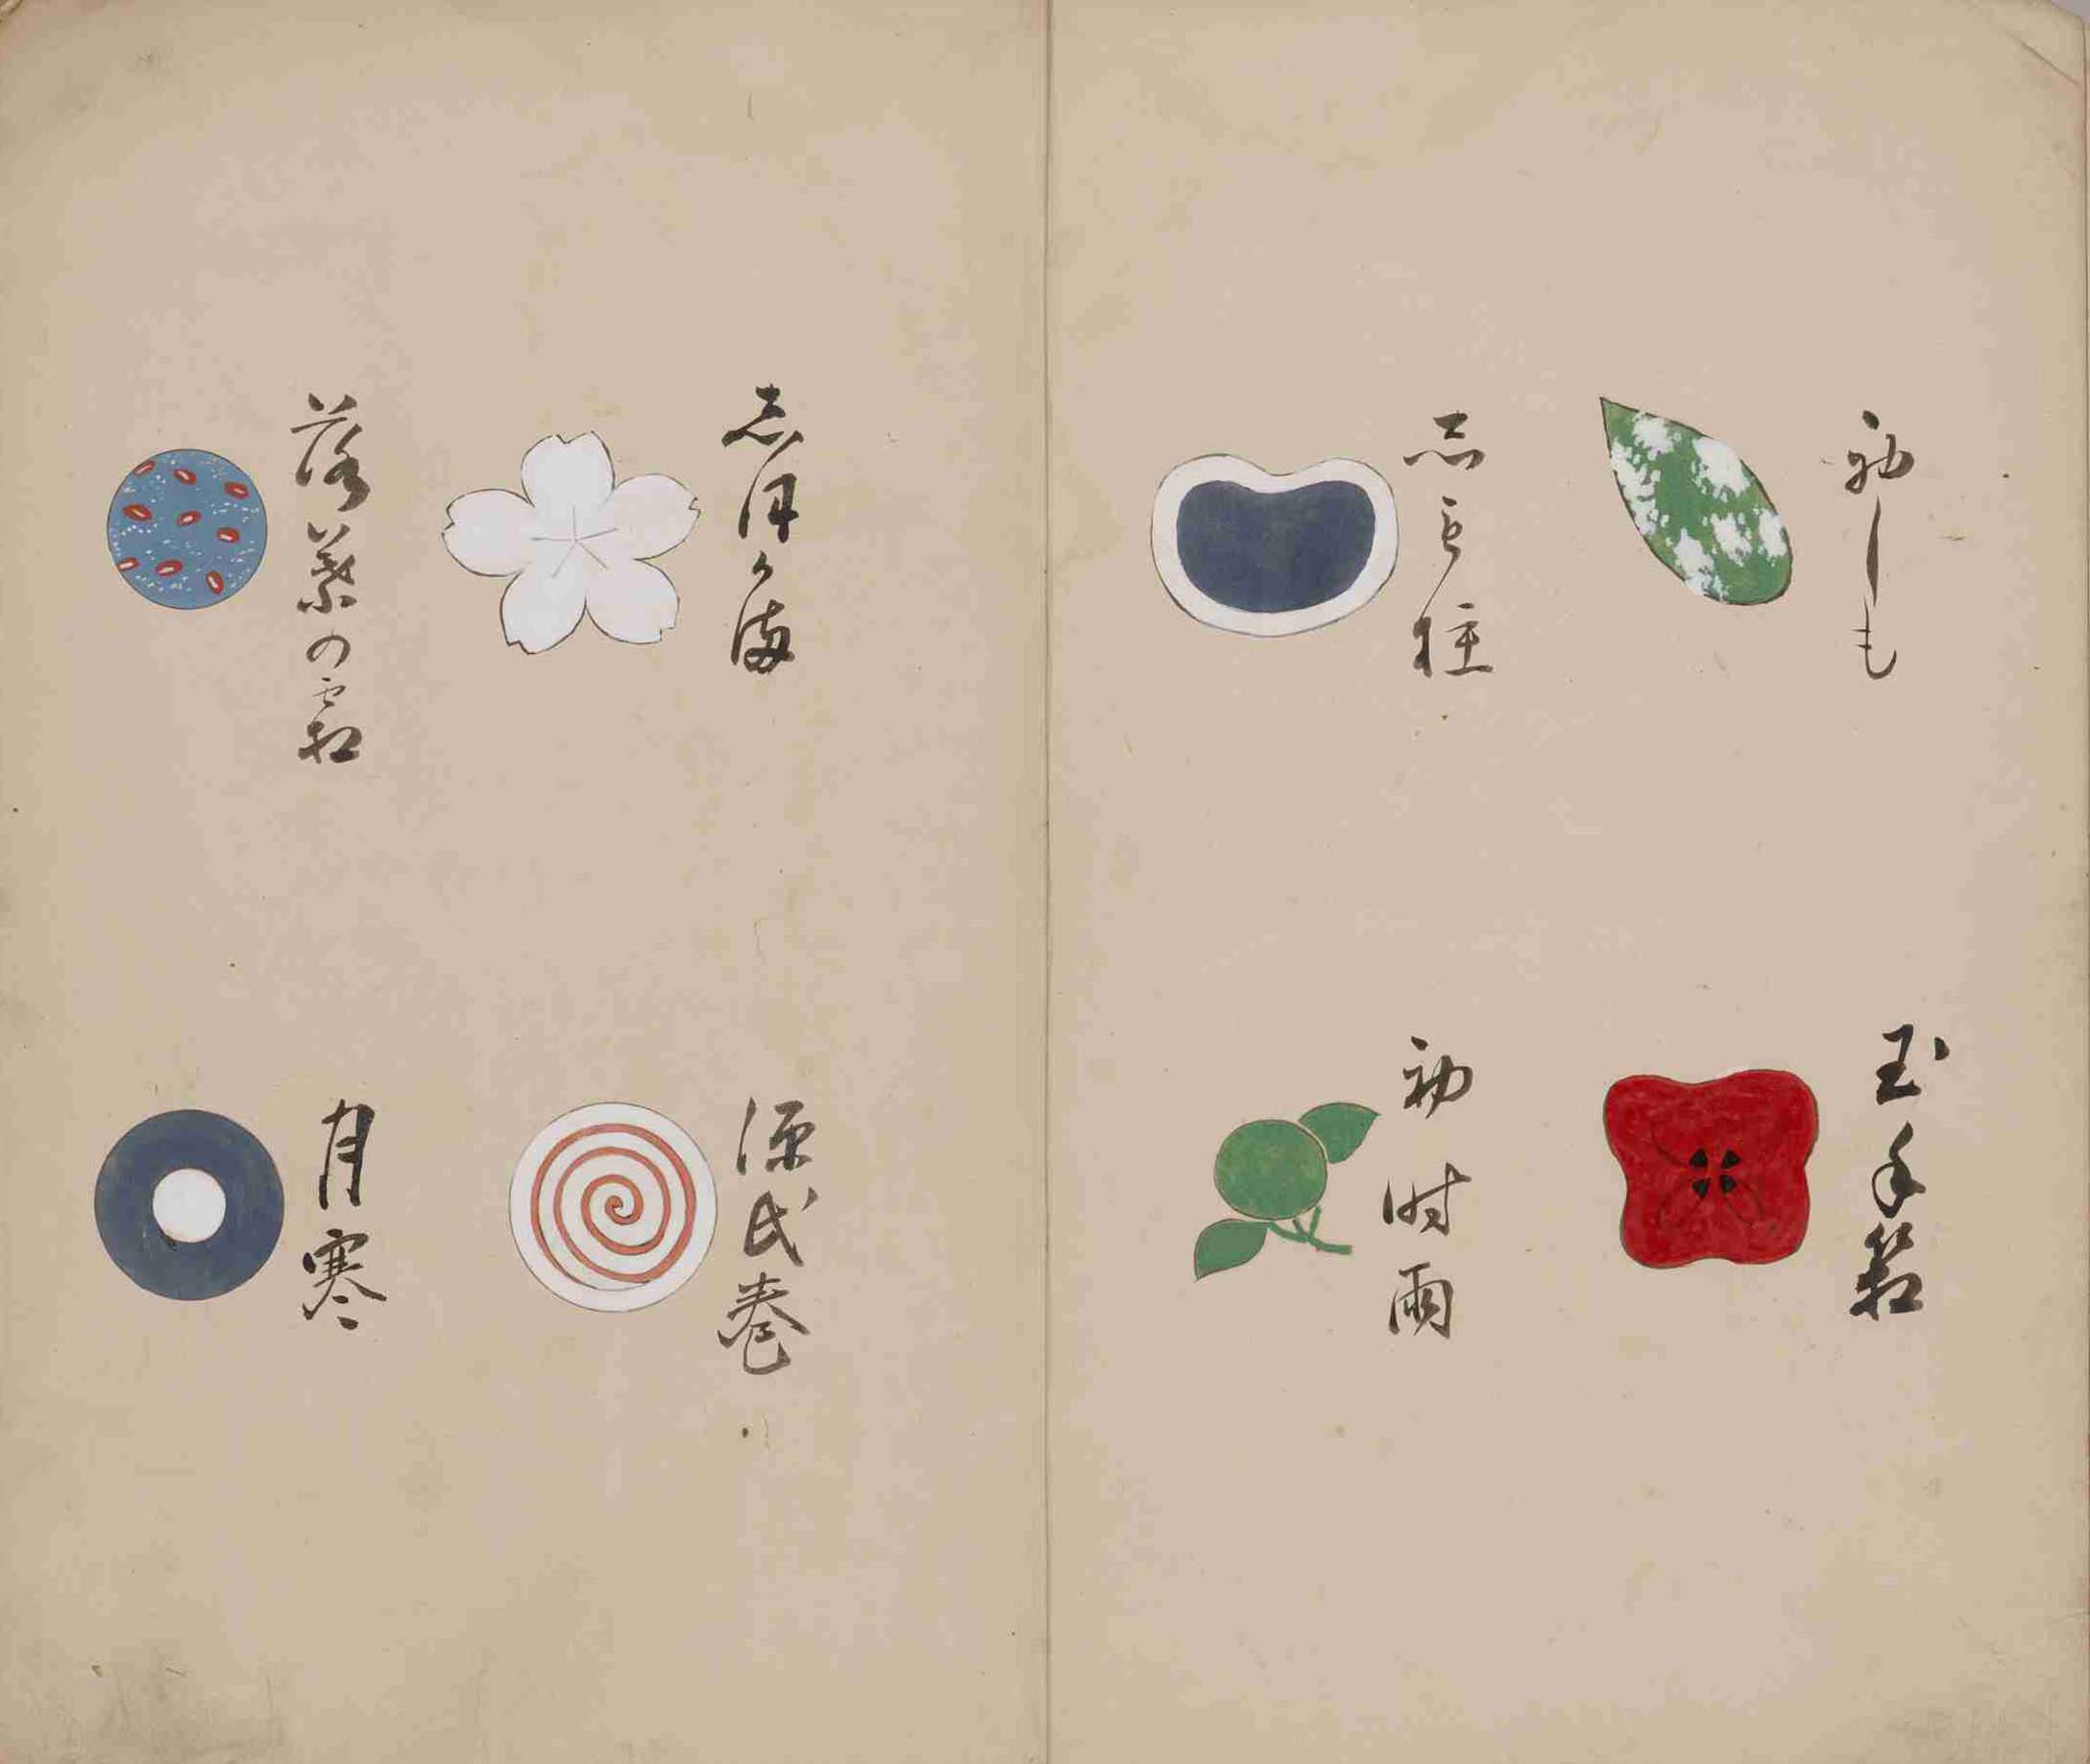 初しも
玉手箱
志も柱
初時雨
志ほかま
源氏巻
落葉の霜
月寒